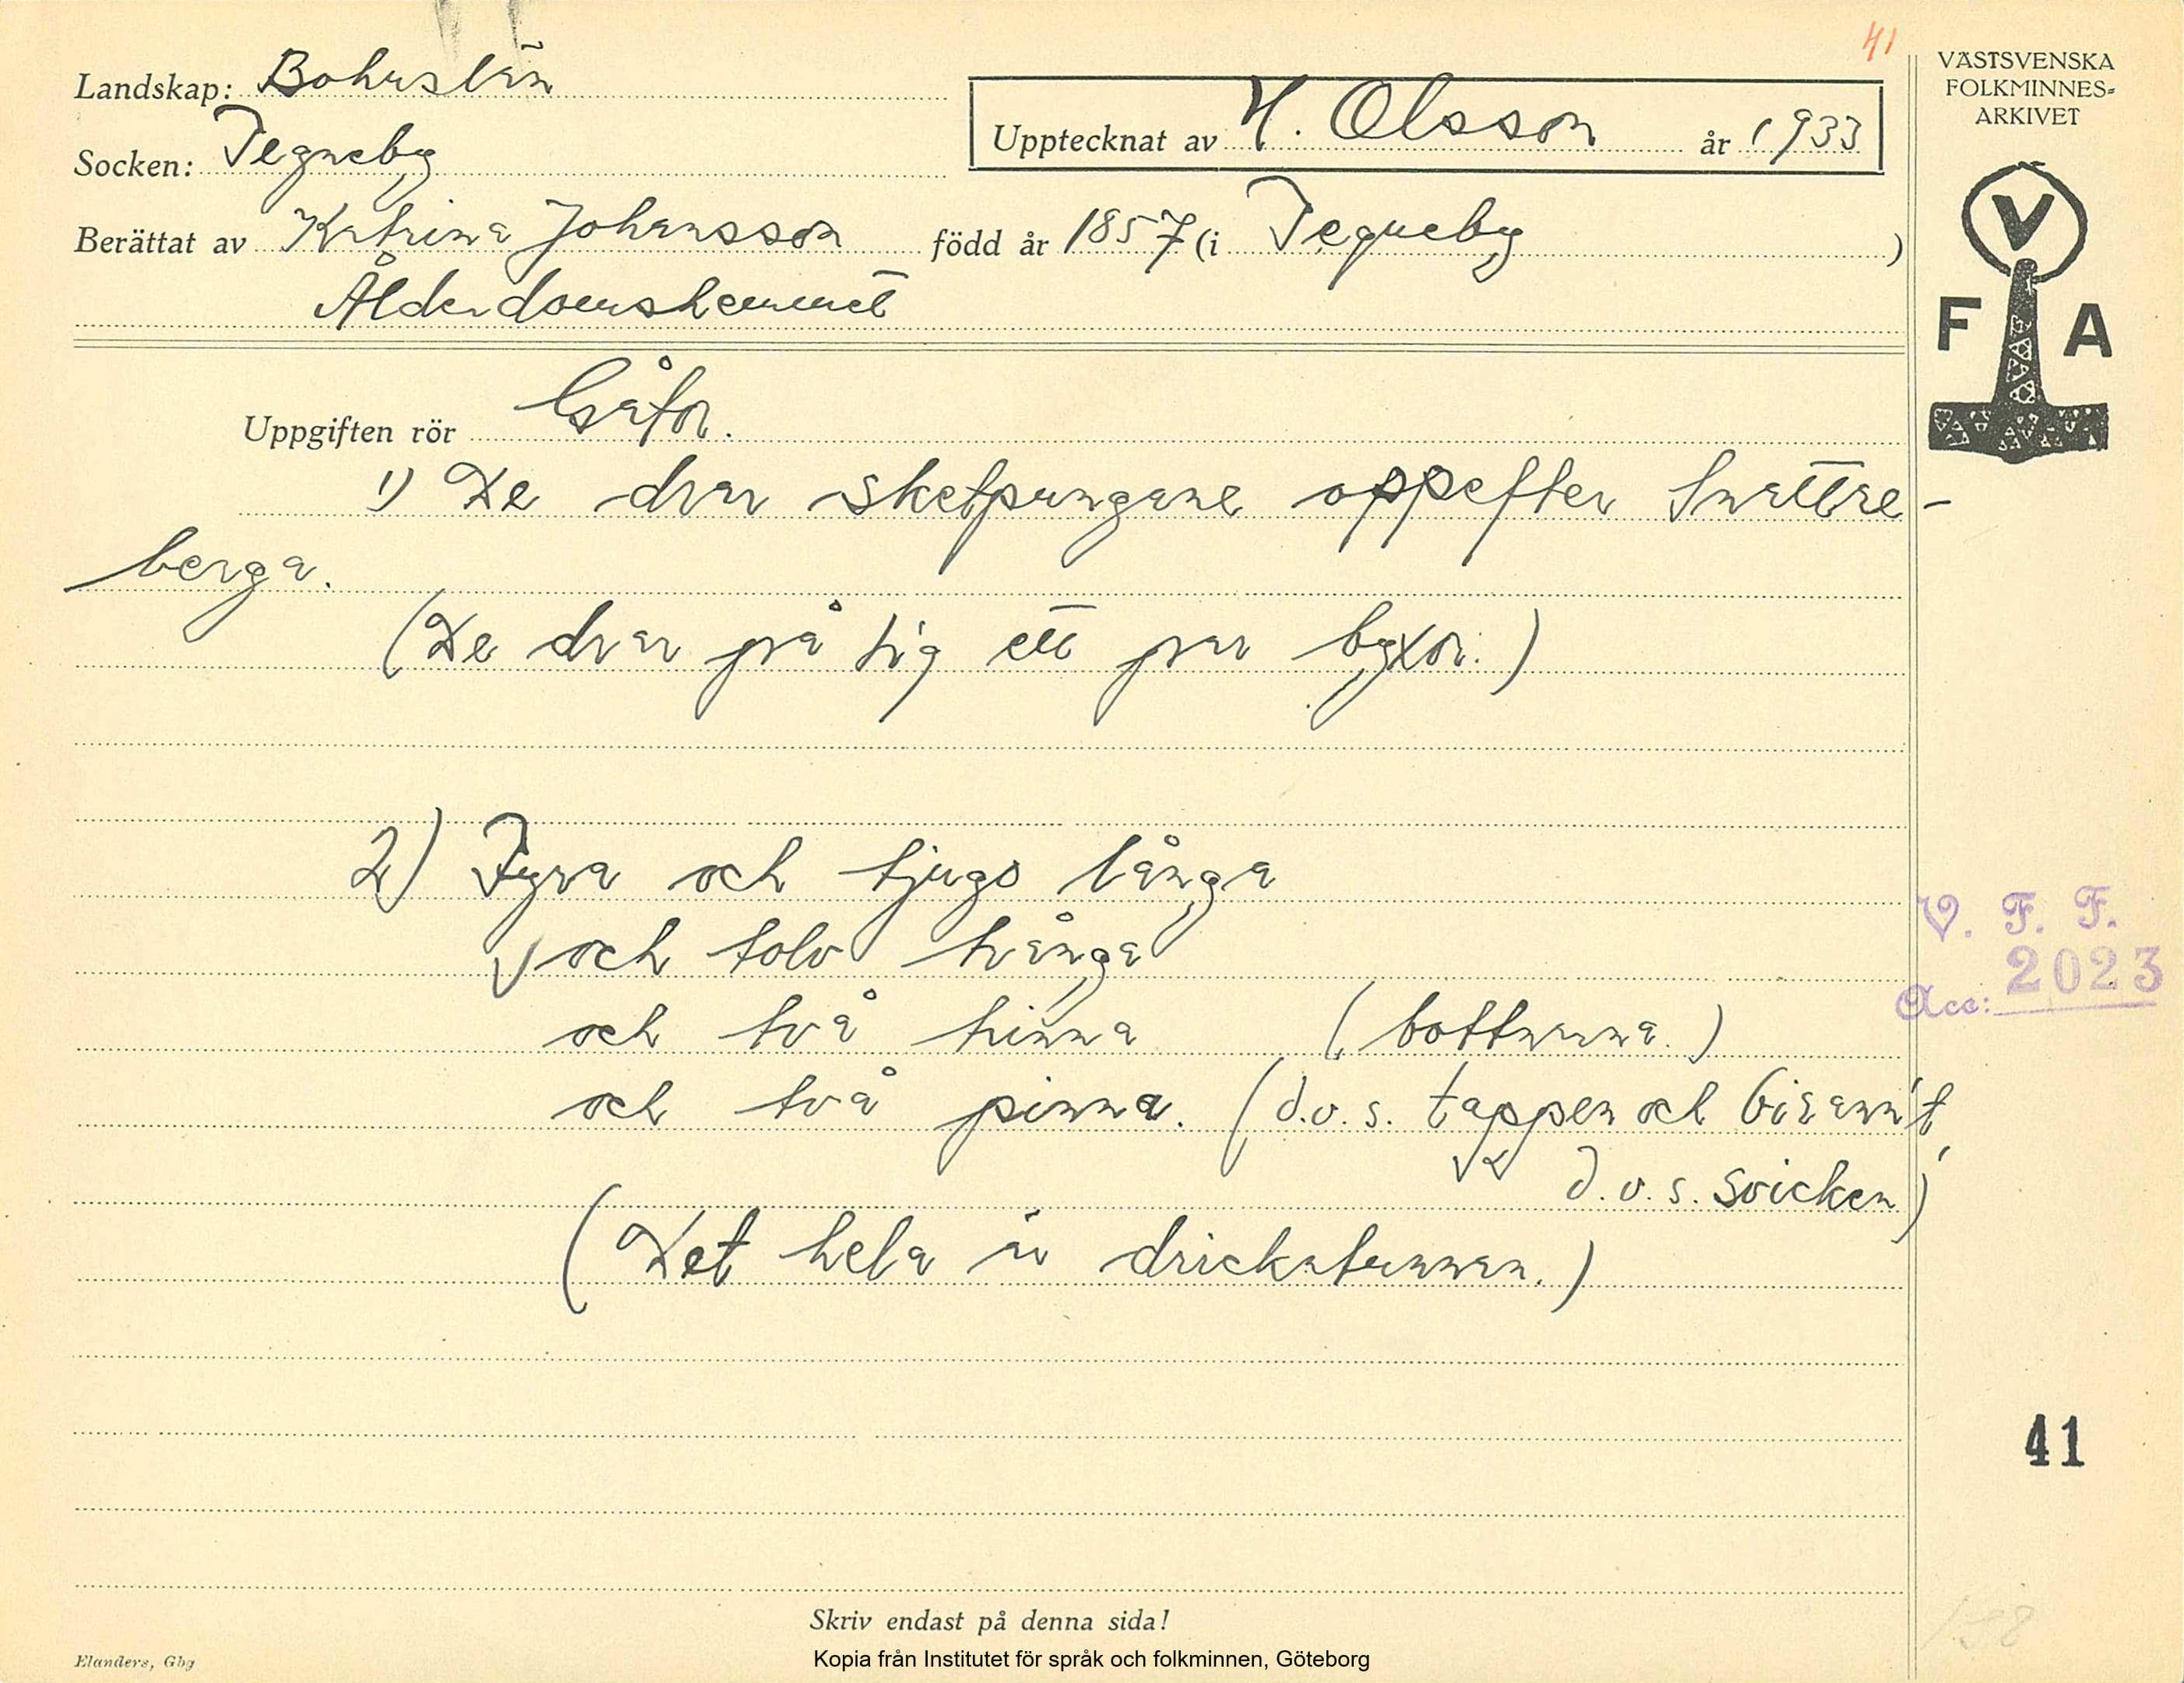 41
Landskap: Bohuslän
Socken: Tegneby
Upptecknat av H. Olsson år 1933
Berättat av Katrina Johansson född år 1857 (i Tegneby)
Ålderdomshemmet
VÄSTSVENSKA
FOLKMINNES-
ARKIVET
V
F A
Uppgiften rör Gåtor.
1) De drar sketpungane oppefter Snattre-
berga.
(De drar på sig ett par byxor.)
2) Fyra och tjugo långa
och tolv trånga
och två trinna (bottnarna.)
och två pinna. (d.v.s. tappen och
d.v.s. svicken)
(Det hela är drickatunnan.)
V. F. F.
Acc: 2023
41
Skriv endast på denna sida!
Kopia från Institutet för språk och folkminnen, Göteborg
Elanders, Gbg